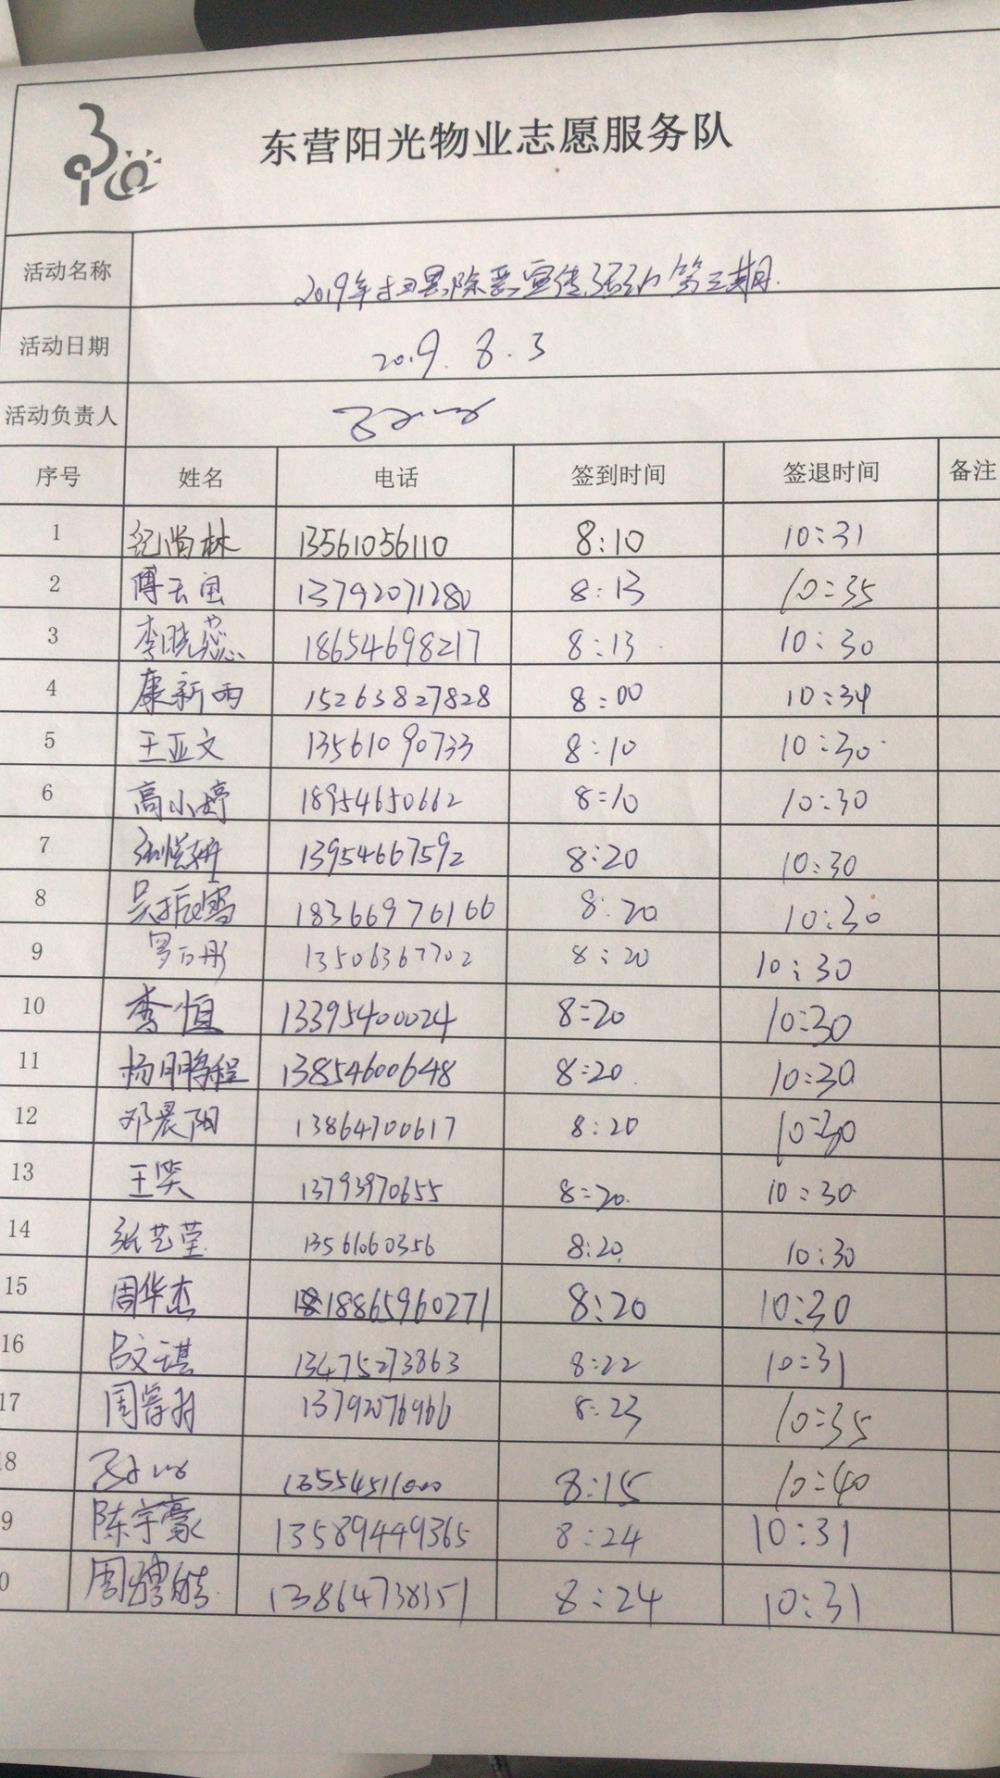 东营阳光物业志愿服务队
活动名称 2019年扫黑除恶宣传活动第三期
活动日期 2019.8.3
活动负责人
序号 姓名 电话 签到时间 签退时间 备注
1 纪尚林 13561056110 8:10 10:31
2 傅云宝 13792071280 8:13 10:35
3 李晓蕊 18654698217 8:13 10:30
4 康新雨 15263827828 8:00 10:34
5 王亚文 13561090733 8:10 10:30
6 高小婷 18954650662 8:10 10:30
7 张悦妍 13954667592 8:20 10:30
8 吴振雪 18366976166 8:20 10:30
9 13506367702 8:20 10:30
10 李恒 13395400024 8:20 10:30
11 杨鹏程 13854600648 8:20 10:30
12 邓晨阳 13864700617 8:20 10:30
13 王笑 13793970655 8:20 10:30
14 张艺莹 13561060356 8:20 10:30
15 周华杰 18865960271 8:20 10:30
16 吕文琪 13475273863 8:22 10:31
17 13792076966 8:23 10:35
8 8:15 10:40
9 陈宇豪 13589449365 8:24 10:31
0 13864738151 8:24 10:31